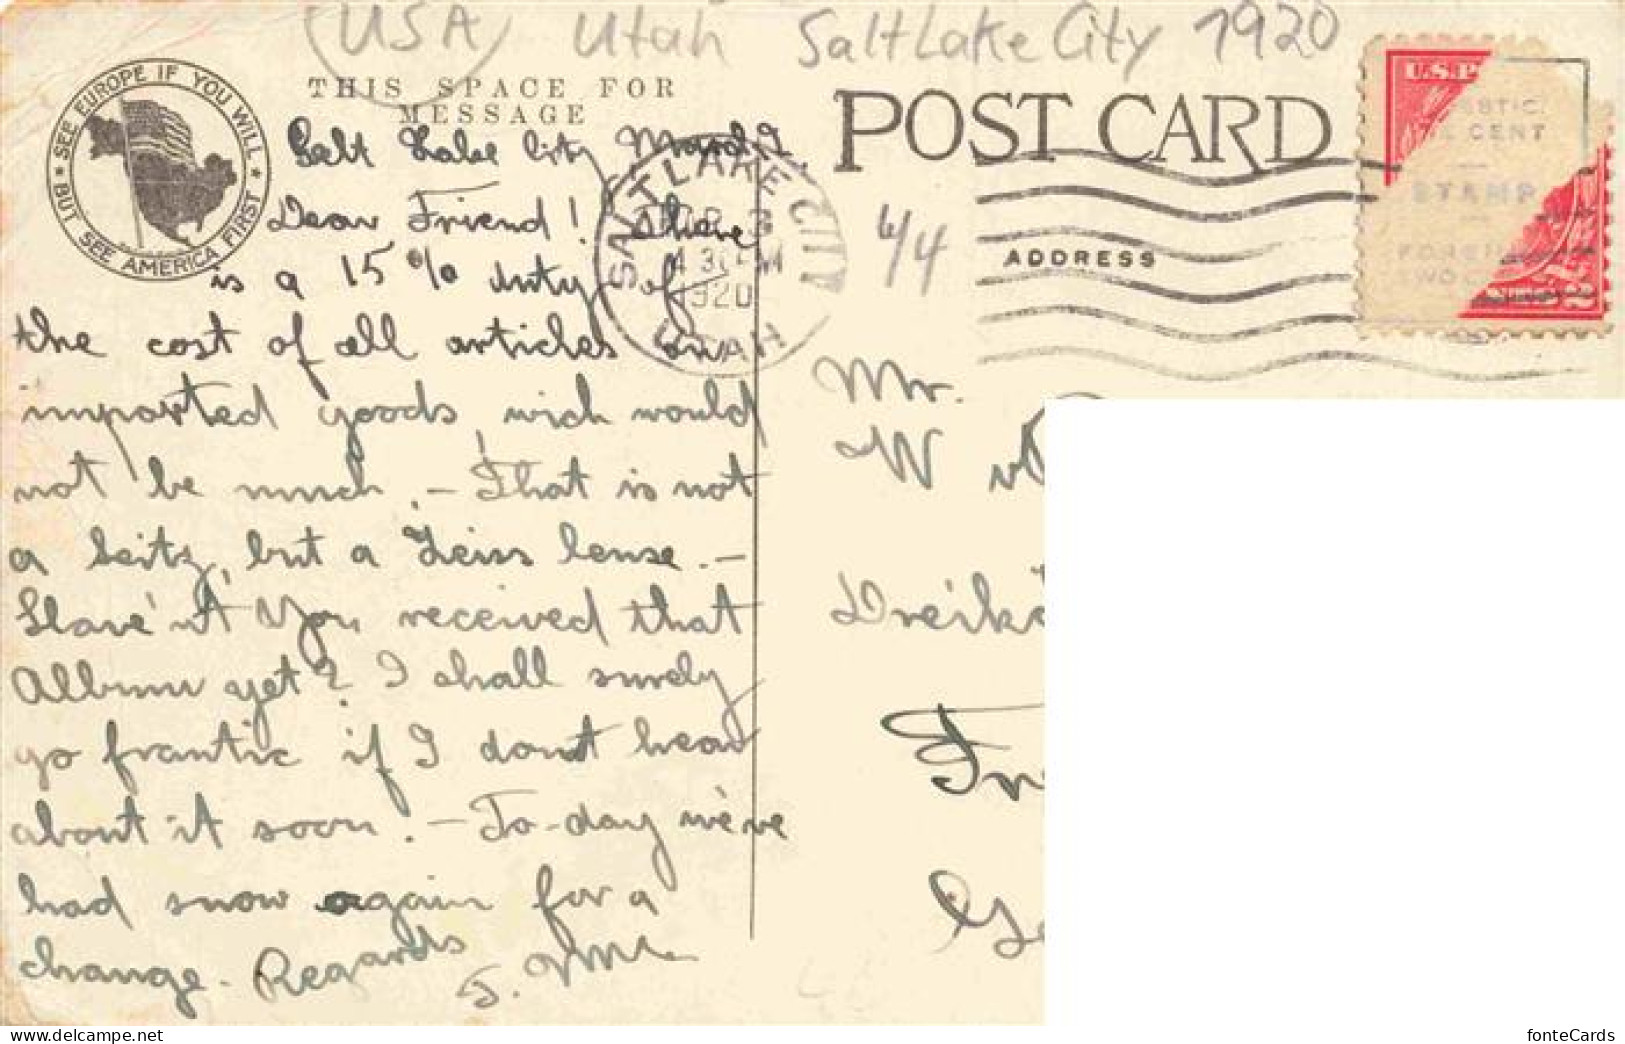 (USA) Utah Salt Lake City 1920
SEE EUROPE IF YOU WILL
BUT SEE AMERICA FIRST
THIS SPACE FOR
MESSAGE
POST CARD
ADDRESS
SALT LAKE CITY
3
4 30 PM
1920
UTAH
U.S.P
CENT
STAMP
4/4
Salt Lake City
Dear Friend! There
is a 15% duty of
the cost of all articles on
imported goods, wich would
not be much. – That is not
a Seitz, but a Zeiss lense. –
Have'nt You received that
Album yet? I shall surely
go frantic if I dont hear
about it soon. – To-day we've
had snow again for a
change. Regards
Mr.
W
fonteCards